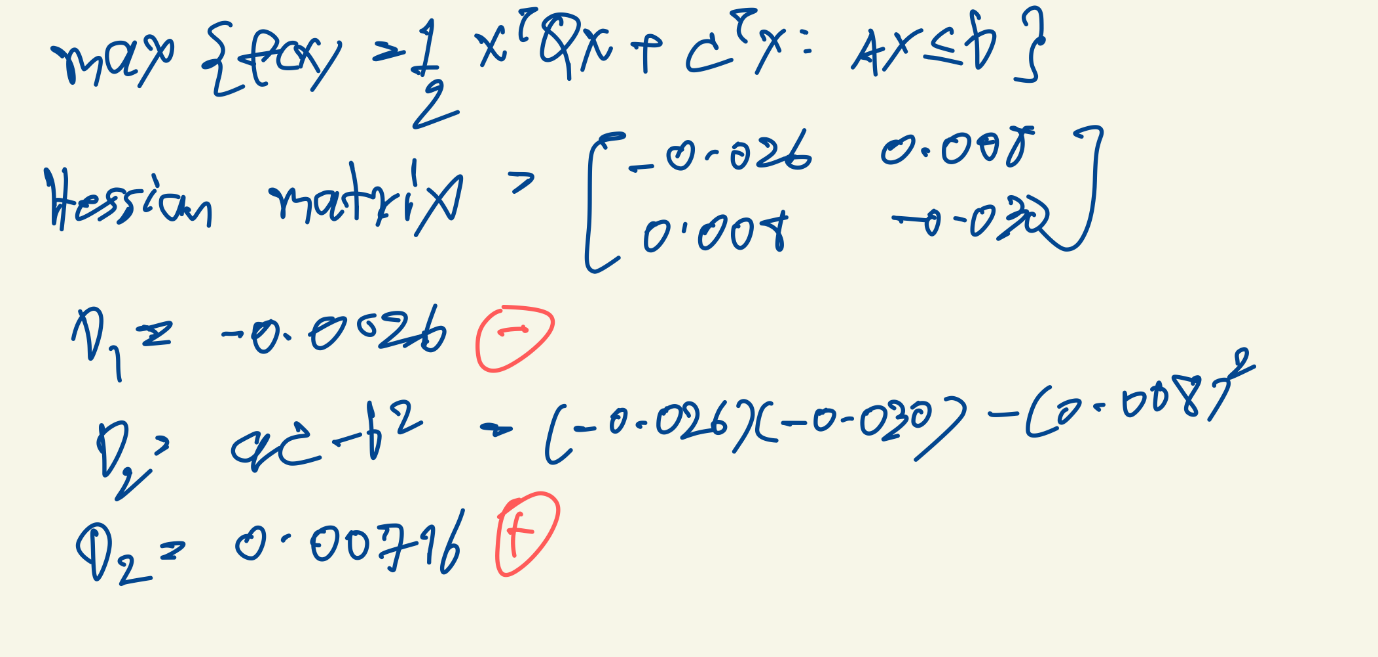 max {f(x) = 1/2 x^T Qx + c^T x : Ax ≤ b }
Hessian matrix = [ -0.026 0.008
0.008 -0.030 ]
D_1 = -0.0026 (-)
D_2 = ac - b^2 = (-0.026)(-0.030) - (0.008)^2
D_2 = 0.00716 (+)